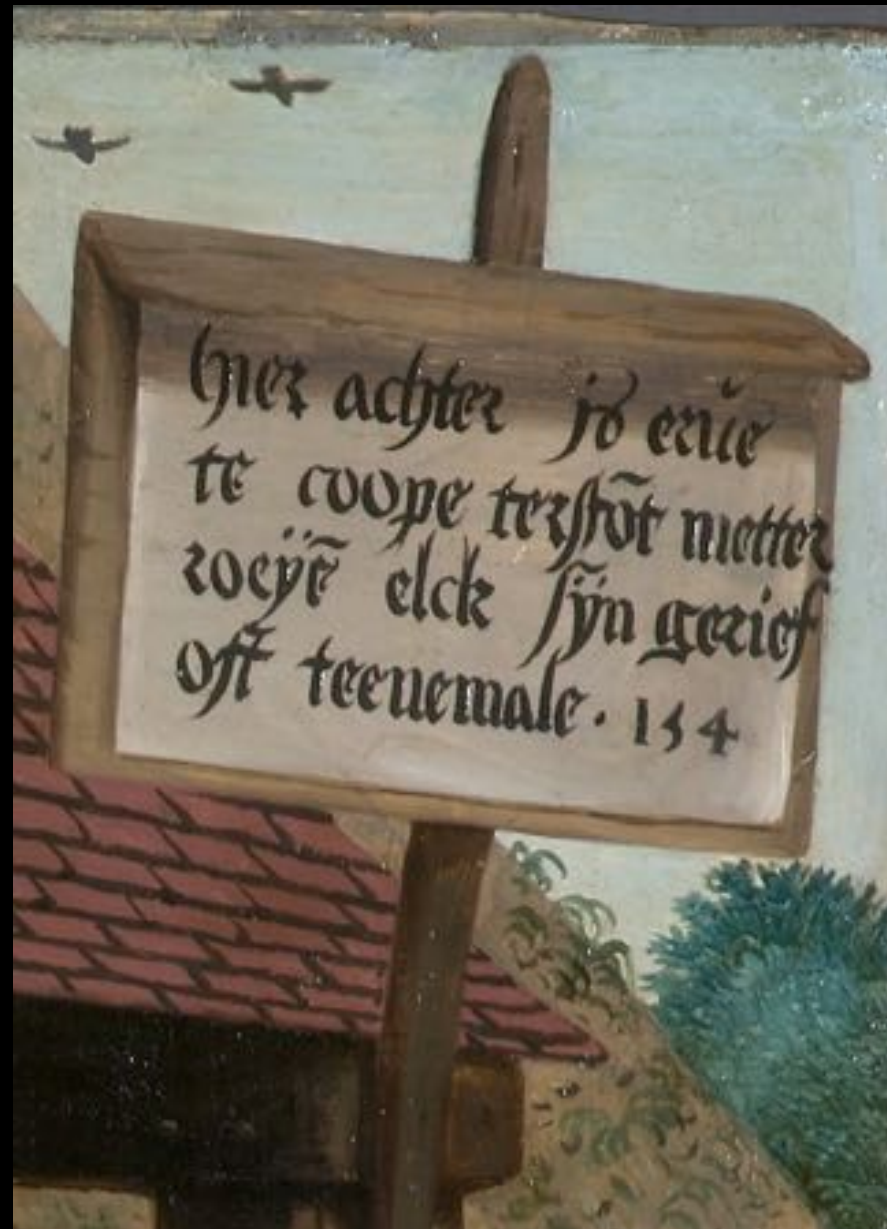 hier achter is erve
te coope terstōt metter
roeyē elck sijn gerief
oft teenemale · 154